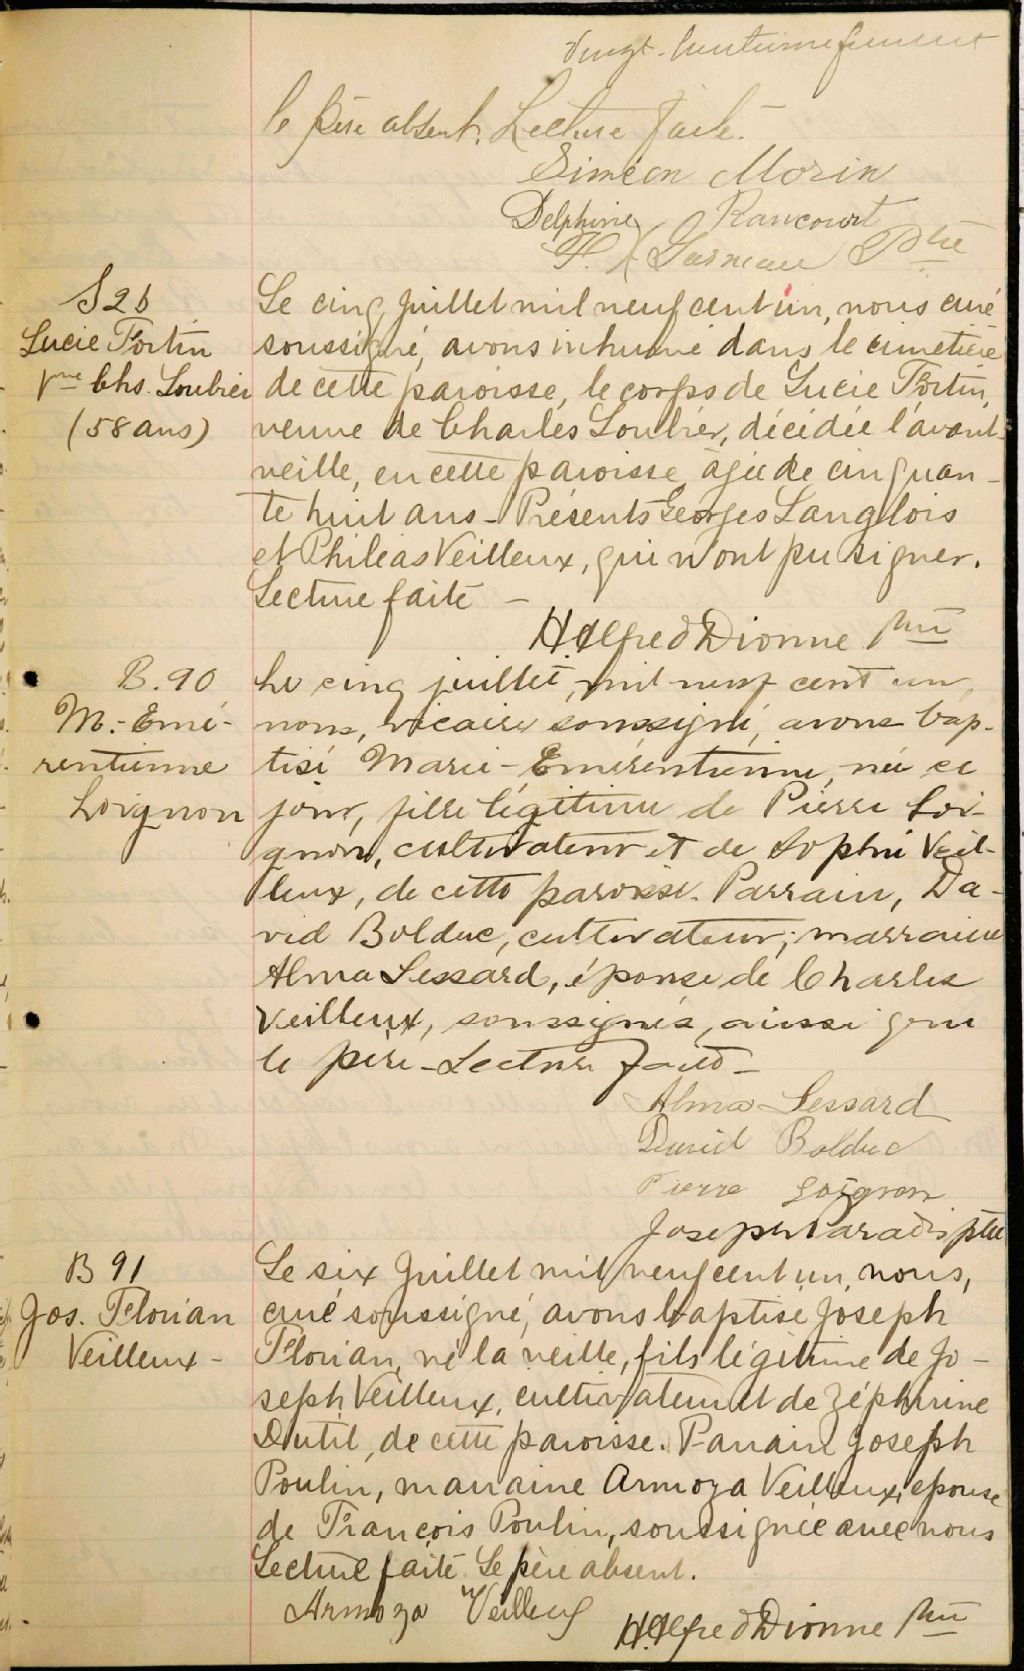 Vingt-huitième feuillet
le père absent. Lecture faite.
Siméon Morin
Delphine Rancourt
F. X Garneau Ptre
S 26
Lucie Fortin
Vve Chs. Loubier
(58 ans)
Le cinq Juillet mil neuf cent un, nous curé
soussigné, avons inhumé dans le cimetière
de cette paroisse, le corps de Lucie Fortin,
veuve de Charles Loubier, décédée l'avant-
veille, en cette paroisse, âgée de cinquan-
te huit ans - Présents Georges Langlois
et Philéas Veilleux, qui n'ont pu signer.
Lecture faite -
H. Alfred Dionne Ptre
B. 90
M.-Emé-
rentienne
Loignon
Le cinq juillet, mil neuf cent un,
nous, vicaire soussigné, avons bap-
tisé Marie-Emérentienne, née ce
jour, fille légitime de Pierre Loi-
gnon, cultivateur et de Sophie Veil-
leux, de cette paroisse. Parrain, Da-
vid Bolduc, cultivateur; marraine
Alma Lessard, épouse de Charles
Veilleux, soussignés, ainsi que
le père - Lecture faite -
Alma Lessard
David Bolduc
Pierre Loignon
Joseph Paradis ptre
B 91
Jos. Florian
Veilleux -
Le six Juillet mil neuf cent un, nous,
curé soussigné, avons baptisé Joseph
Florian, né la veille, fils légitime de Jo-
seph Veilleux, cultivateur et de Zéphirine
Dutil, de cette paroisse. Parrain Joseph
Poulin, marraine Armoza Veilleux, épouse
de François Poulin, soussignée avec nous
Lecture faite. Le père absent.
Armoza Veilleux
H. Alfred Dionne Ptre